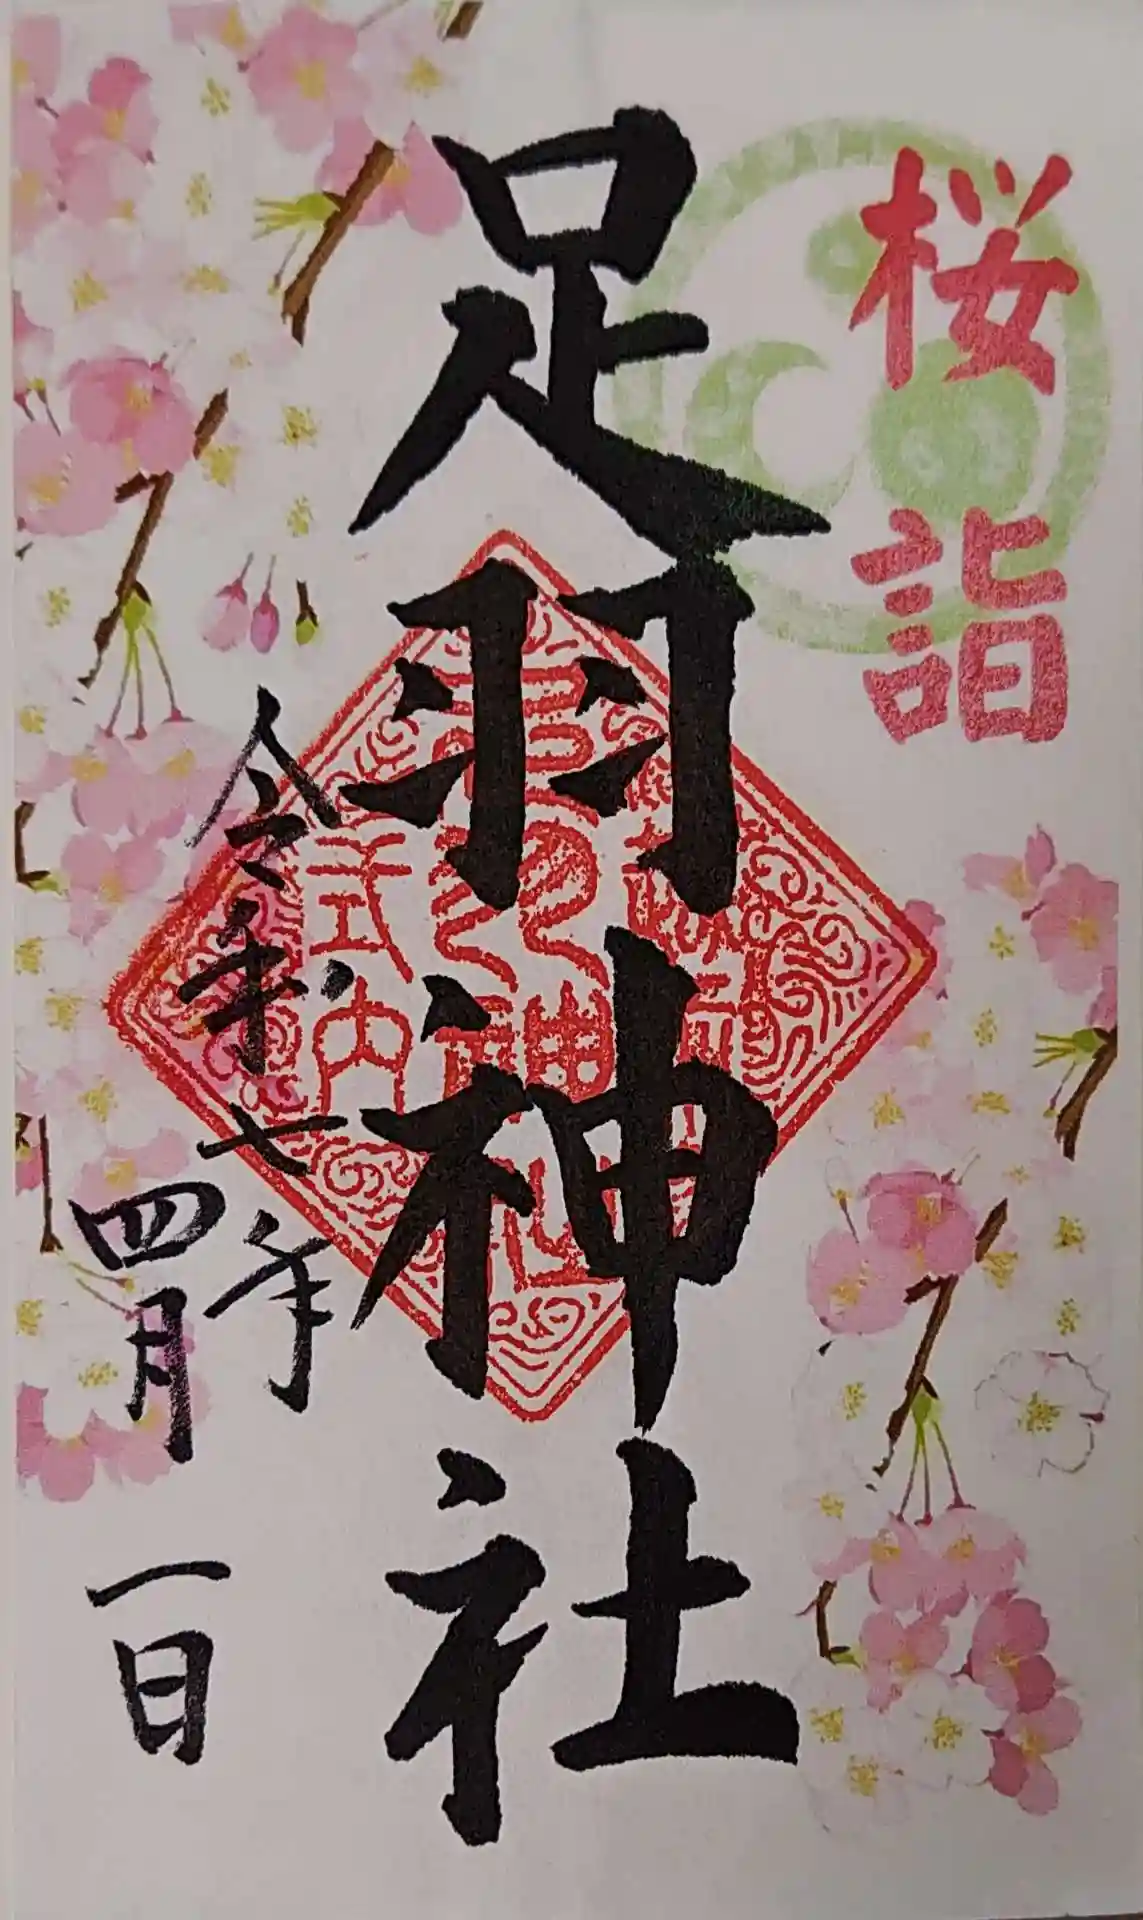 桜詣
足羽神社
式内
令和七年
四月一日